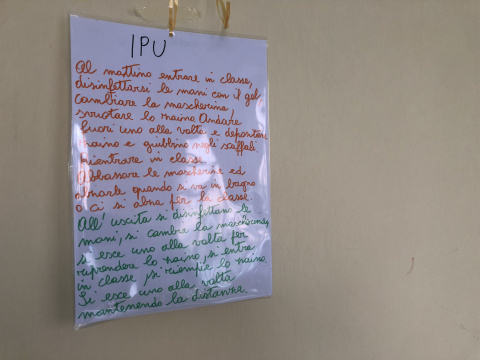 IPU
Al mattino entrare in classe,
disinfettarsi le mani con il gel
cambiare la mascherina,
svuotare lo zaino. Andare
fuori uno alla volta e depositare
zaino e giubbino negli scaffali
rientrare in classe.
Abbassare le mascherine ed
alzarle quando si va in bagno
o ci si alza per la classe.
All'uscita si disinfettano le
mani, si cambia la mascherina,
si esce uno alla volta per
riprendere lo zaino, si entra
in classe, si riempie lo zaino.
Si esce uno alla volta
mantenendo la distanza.